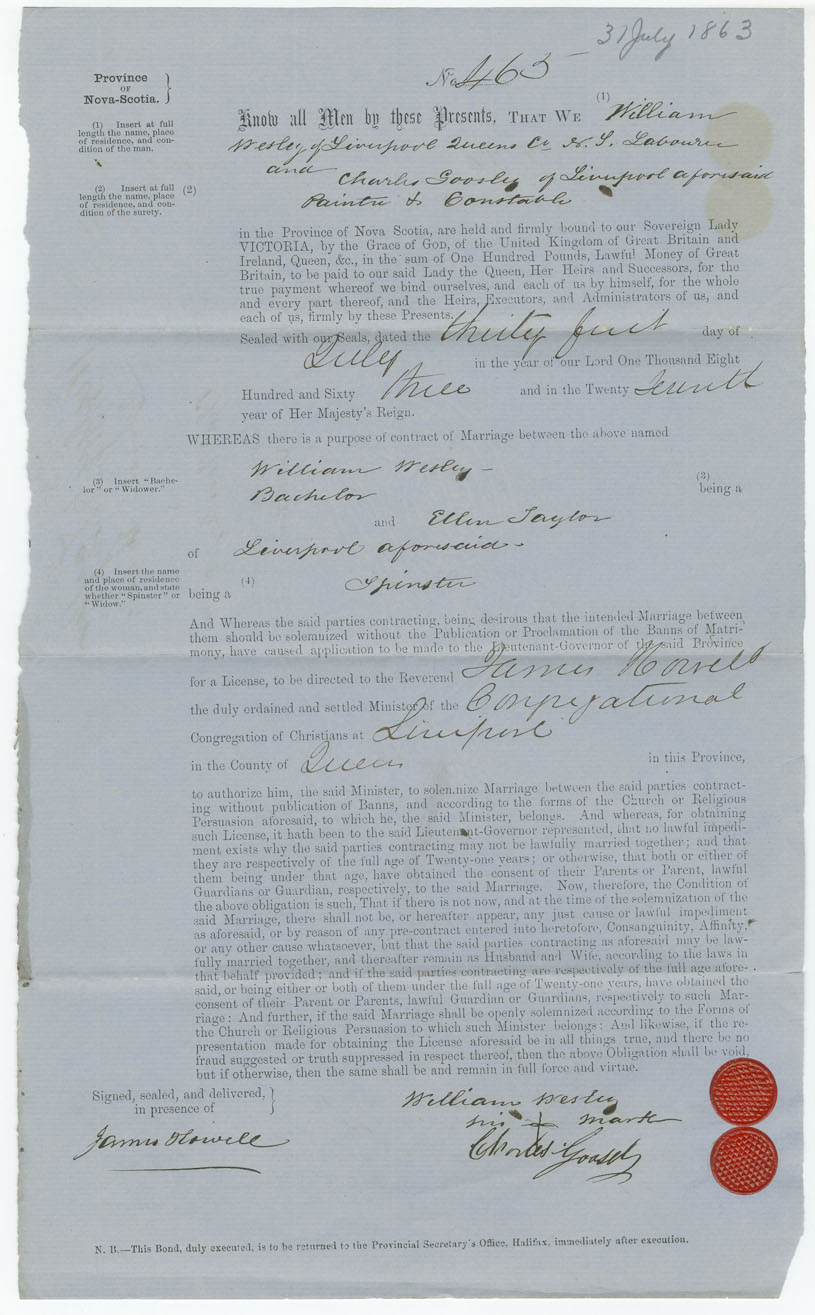 31 July 1863
No. 463
Province
OF
Nova-Scotia.
(1) Insert at full
length the name, place
of residence, and con-
dition of the man.
(1)
Know all Men by these Presents, THAT WE William
Wesley of Liverpool Queens Co N. S. Labourer
and
Charles Goosley of Liverpool aforesaid
(2) Insert at full
length the name, place
of residence, and con-
dition of the surety.
(2)
Painter & Constable
in the Province of Nova Scotia, are held and firmly bound to our Sovereign Lady
VICTORIA, by the Grace of GOD, of the United Kingdom of Great Britain and
Ireland, Queen, &c., in the sum of One Hundred Pounds, Lawful Money of Great
Britain, to be paid to our said Lady the Queen, Her Heirs and Successors, for the
true payment whereof we bind ourselves, and each of us by himself, for the whole
and every part thereof, and the Heirs, Executors, and Administrators of us, and
each of us, firmly by these Presents.
Sealed with our Seals, dated the thirty first day of
July in the year of our Lord One Thousand Eight
Hundred and Sixty three and in the Twenty Seventh
year of Her Majesty's Reign.
WHEREAS there is a purpose of contract of Marriage between the above named
William Wesley -
(3) Insert "Bache-
lor" or "Widower."
(3)
Bachelor being a
and Ellen Taylor
of Liverpool aforesaid -
(4) Insert the name
and place of residence
of the woman, and state
whether "Spinster" or
"Widow."
(4)
being a Spinster
And Whereas the said parties contracting, being desirous that the intended Marriage between
them should be solemnized without the Publication or Proclamation of the Banns of Matri-
mony, have caused application to be made to the Lieutenant-Governor of the said Province
for a License, to be directed to the Reverend James Howell
the duly ordained and settled Minister of the Congregational
Congregation of Christians at Liverpool
in the County of Queens in this Province,
to authorize him, the said Minister, to solemnize Marriage between the said parties contract-
ing without publication of Banns, and according to the forms of the Church or Religious
Persuasion aforesaid, to which he, the said Minister, belongs. And whereas, for obtaining
such License, it hath been to the said Lieutenant-Governor represented, that no lawful impedi-
ment exists why the said parties contracting may not be lawfully married together; and that
they are respectively of the full age of Twenty-one years; or otherwise, that both or either of
them being under that age, have obtained the consent of their Parents or Parent, lawful
Guardians or Guardian, respectively, to the said Marriage. Now, therefore, the Condition of
the above obligation is such, That if there is not now, and at the time of the solemnization of the
said Marriage, there shall not be, or hereafter appear, any just cause or lawful impediment
as aforesaid, or by reason of any pre-contract entered into heretofore, Consanguinity, Affinity,
or any other cause whatsoever, but that the said parties contracting as aforesaid may be law-
fully married together, and thereafter remain as Husband and Wife, according to the laws in
that behalf provided; and if the said parties contracting are respectively of the full age afore-
said, or being either or both of them under the full age of Twenty-one years, have obtained the
consent of their Parent or Parents, lawful Guardian or Guardians, respectively to such Mar-
riage: And further, if the said Marriage shall be openly solemnized according to the Forms of
the Church or Religious Persuasion to which such Minister belongs: And likewise, if the re-
presentation made for obtaining the License aforesaid be in all things true, and there be no
fraud suggested or truth suppressed in respect thereof, then the above Obligation shall be void,
but if otherwise, then the same shall be and remain in full force and virtue.
Signed, sealed, and delivered,
in presence of
William Wesley
his + mark
James Howell
Charles Goosley
N. B.—This Bond, duly executed, is to be returned to the Provincial Secretary's Office, Halifax, immediately after execution.